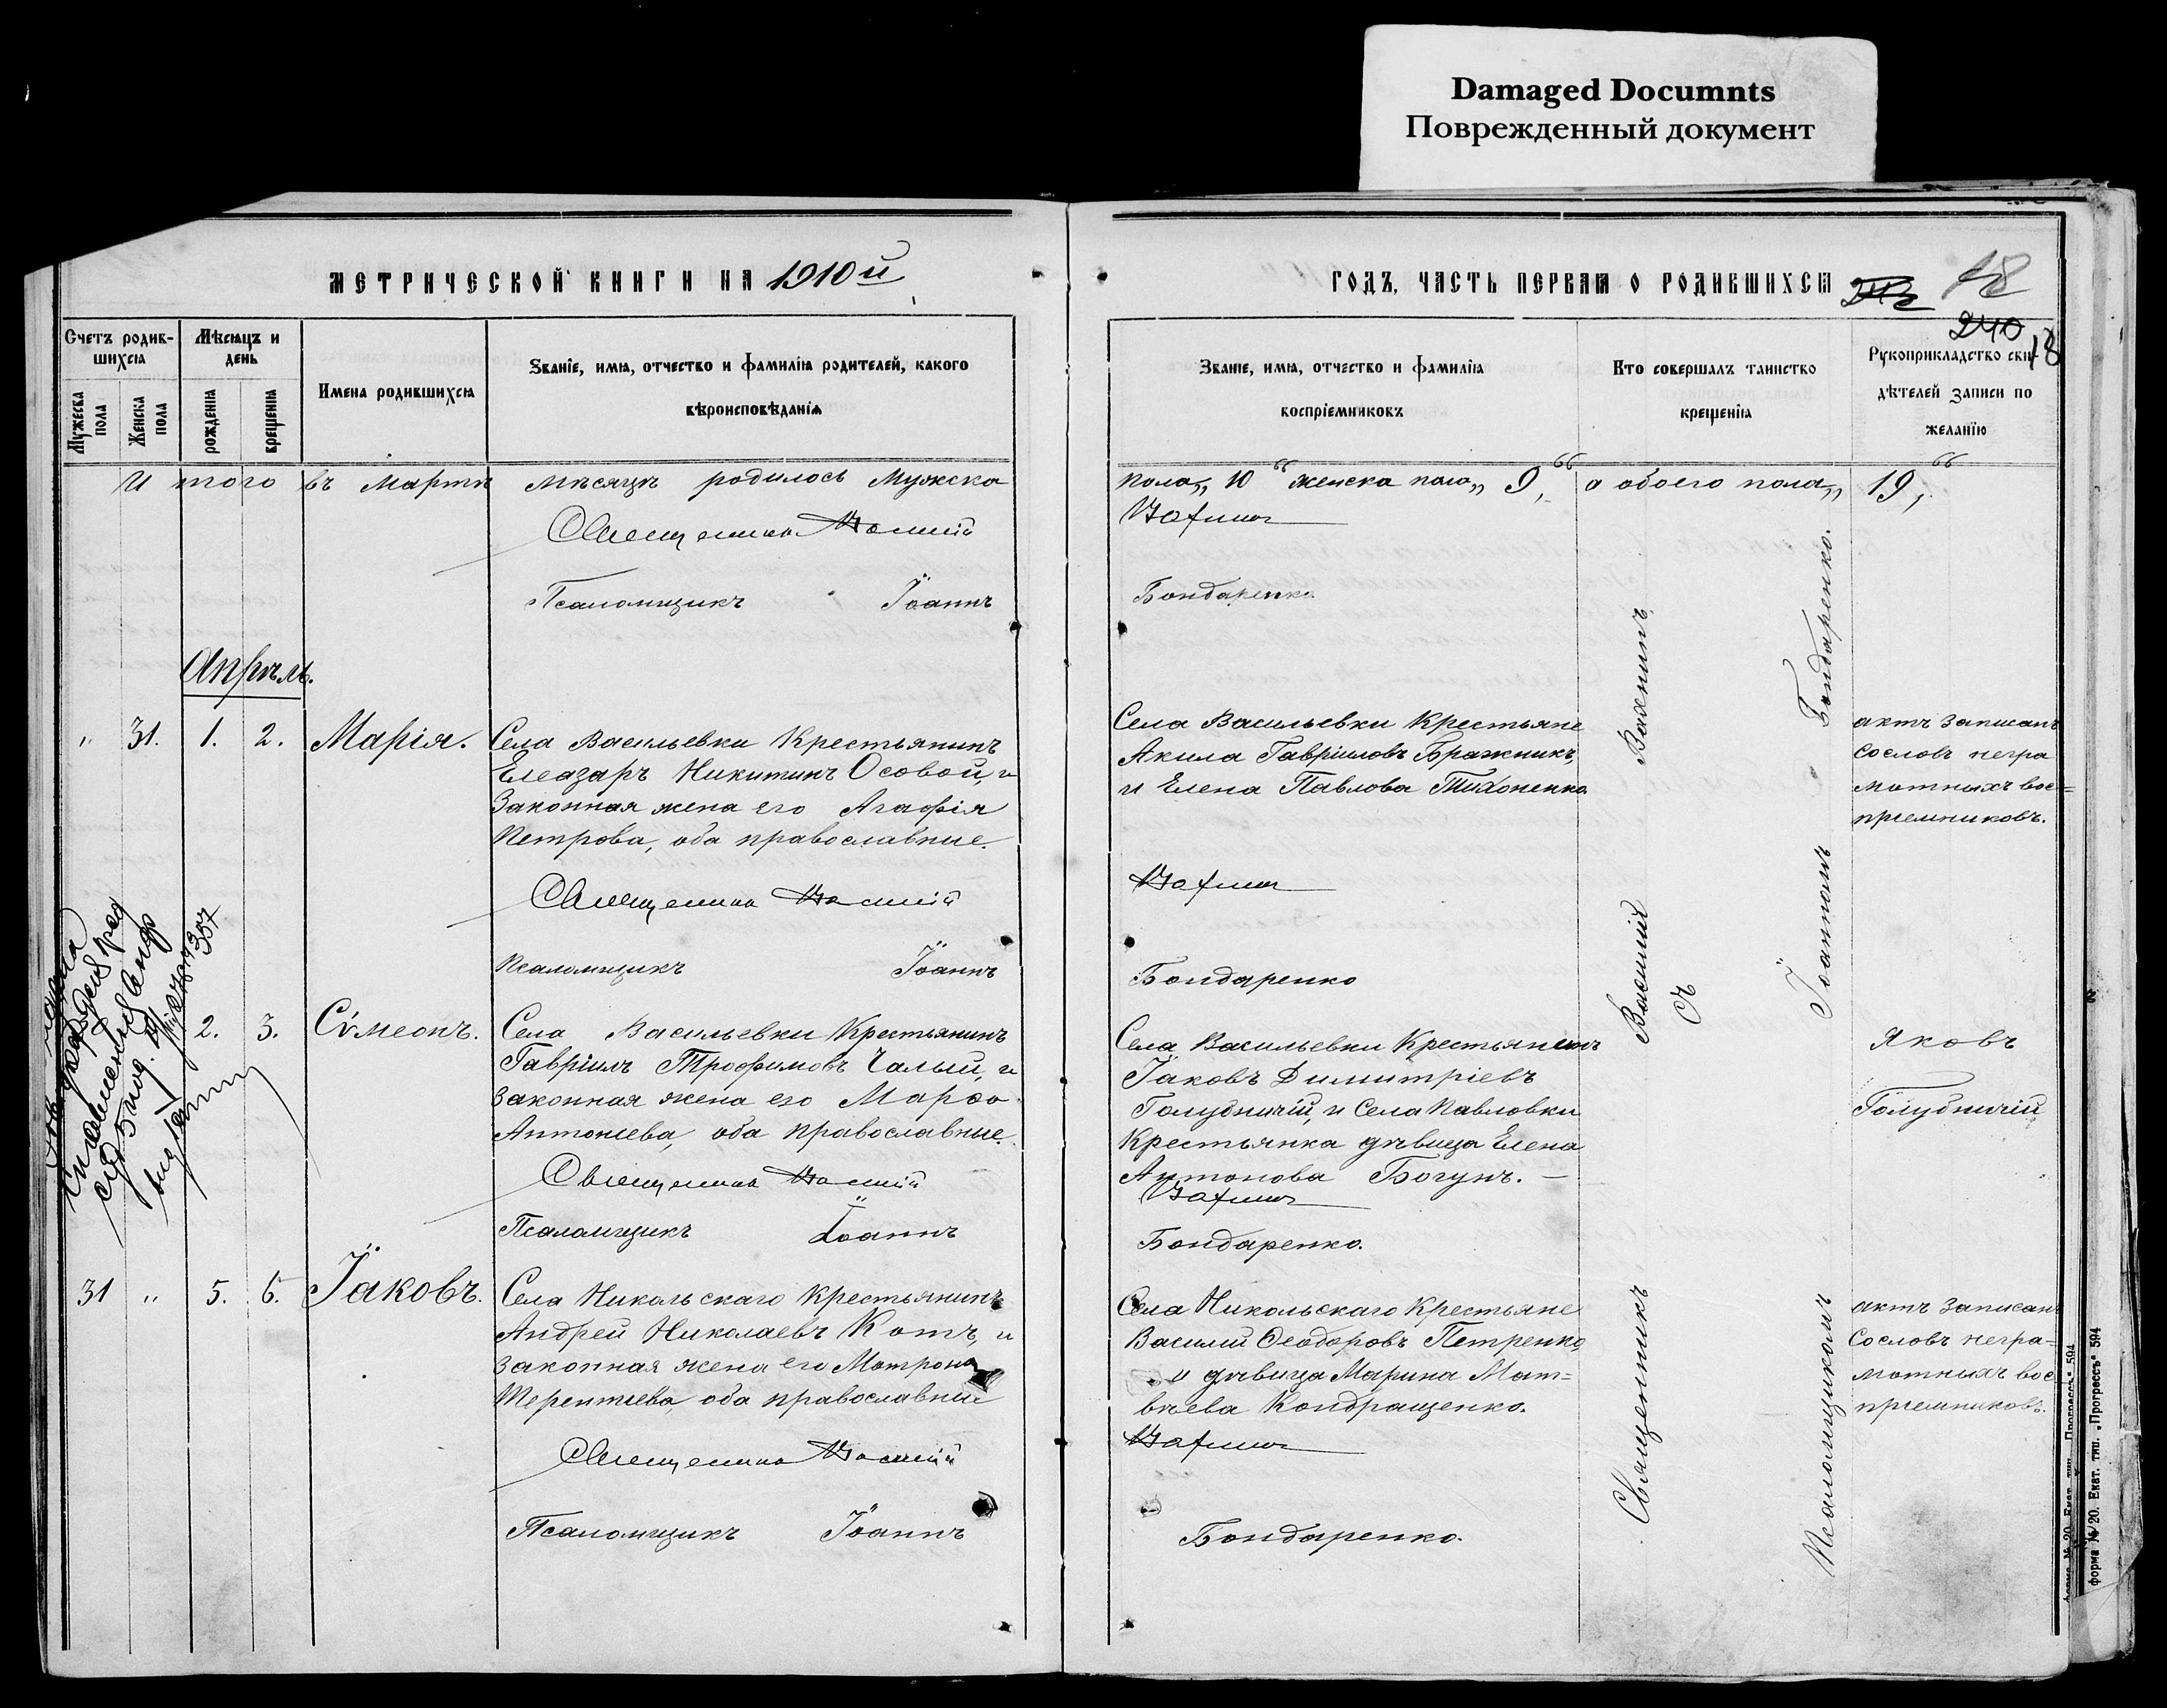 Damaged Documnts
Поврежденный документ
МЕТРИЧЕСКОЙ КНИГИ НА 1910й
ГОДЪ, ЧАСТЬ ПЕРВАЯ О РОДИВШИХСЯ
18
240
18
Счетъ родив-
шихся
Мужеска пола
Женска пола
Мѣсяцъ и
день
рожденія
крещенія
Имена родившихся
Званіе, имя, отчество и фамилія родителей, какого
вѣроисповѣданія
Званіе, имя, отчество и фамилія
воспріемниковъ
Кто совершалъ таинство
крещенія
Рукоприкладство сви-
дѣтелей записи по
желанію
И того въ Мартѣ мѣсяцѣ родилось Мужска
пола „10“ женска пола „9“, а обоего пола „19“,
Священникъ Василій
Псаломщикъ Іоаннъ
Бондаренко
Апрѣль.
„ 31. 1. 2. Марія.
Села Васильевки Крестьянинъ
Елеазаръ Никитинъ Осовой, и
Законная жена его Агафія
Петрова, оба православные.
Села Васильевки Крестьяне
Акила Гавріиловъ Бражникъ,
и Елена Павлова Тихоненко
актъ записанъ
со словъ негра
мотныхъ вос=
пріемниковъ.
Священникъ Василій
Псаломщикъ Іоаннъ
Бондаренко
2. 3. Сѵмеонъ.
Села Васильевки Крестьянинъ
Гавріилъ Трофимовъ Чалый, и
Законная жена его Марѳа
Антоніева, оба православные.
Села Васильевки Крестьянинъ
Іаковъ Димитріевъ
Голубничій, и Села Павловки
Крестьянка дѣвица Елена
Антонова Богунъ. —
Яковъ
Голубничій
Священникъ Василій
Псаломщикъ Іоаннъ
Бондаренко.
31 „ 5. 6. Іаковъ.
Села Никольскаго Крестьянинъ
Андрей Николаевъ Котъ, и
Законная жена его Матрона
Терентіева, оба православные
Села Никольскаго Крестьяне
Василий Ѳеодоровъ Петренко
и дѣвица Марина Мат=
вѣева Кондращенко.
актъ записанъ
со словъ негра-
мотныхъ вос
пріемниковъ.
Священникъ Василій
Псаломщикъ Іоаннъ
Бондаренко.
Священникъ Василій
съ
Псаломщикомъ Іоанномъ Бондаренко.
форма № 20. Екат. тип. „Прогрессъ“ 594